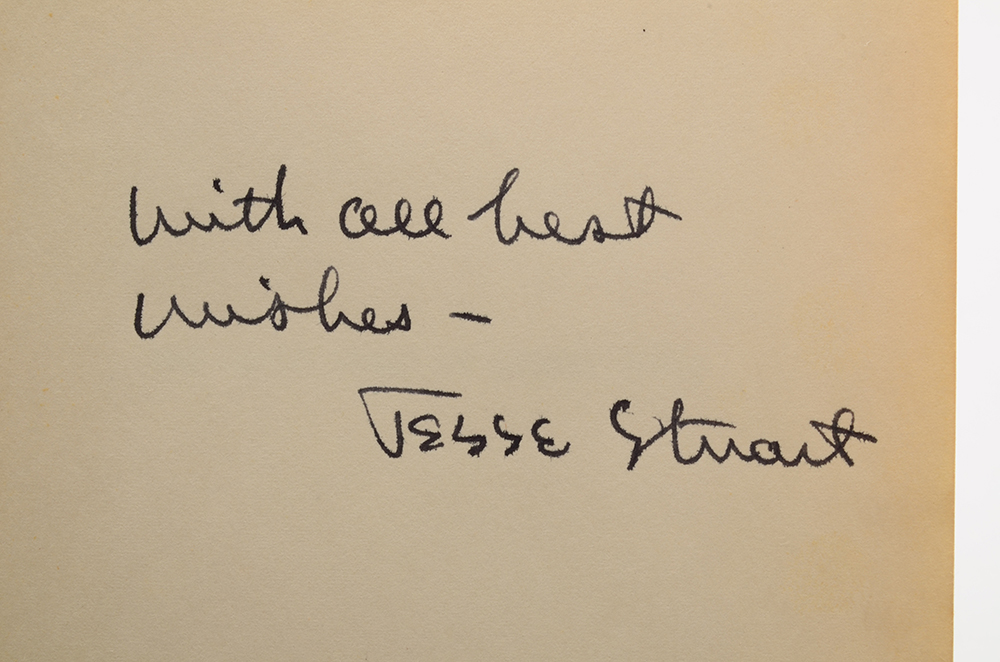 with all best
wishes -
Jesse Stuart